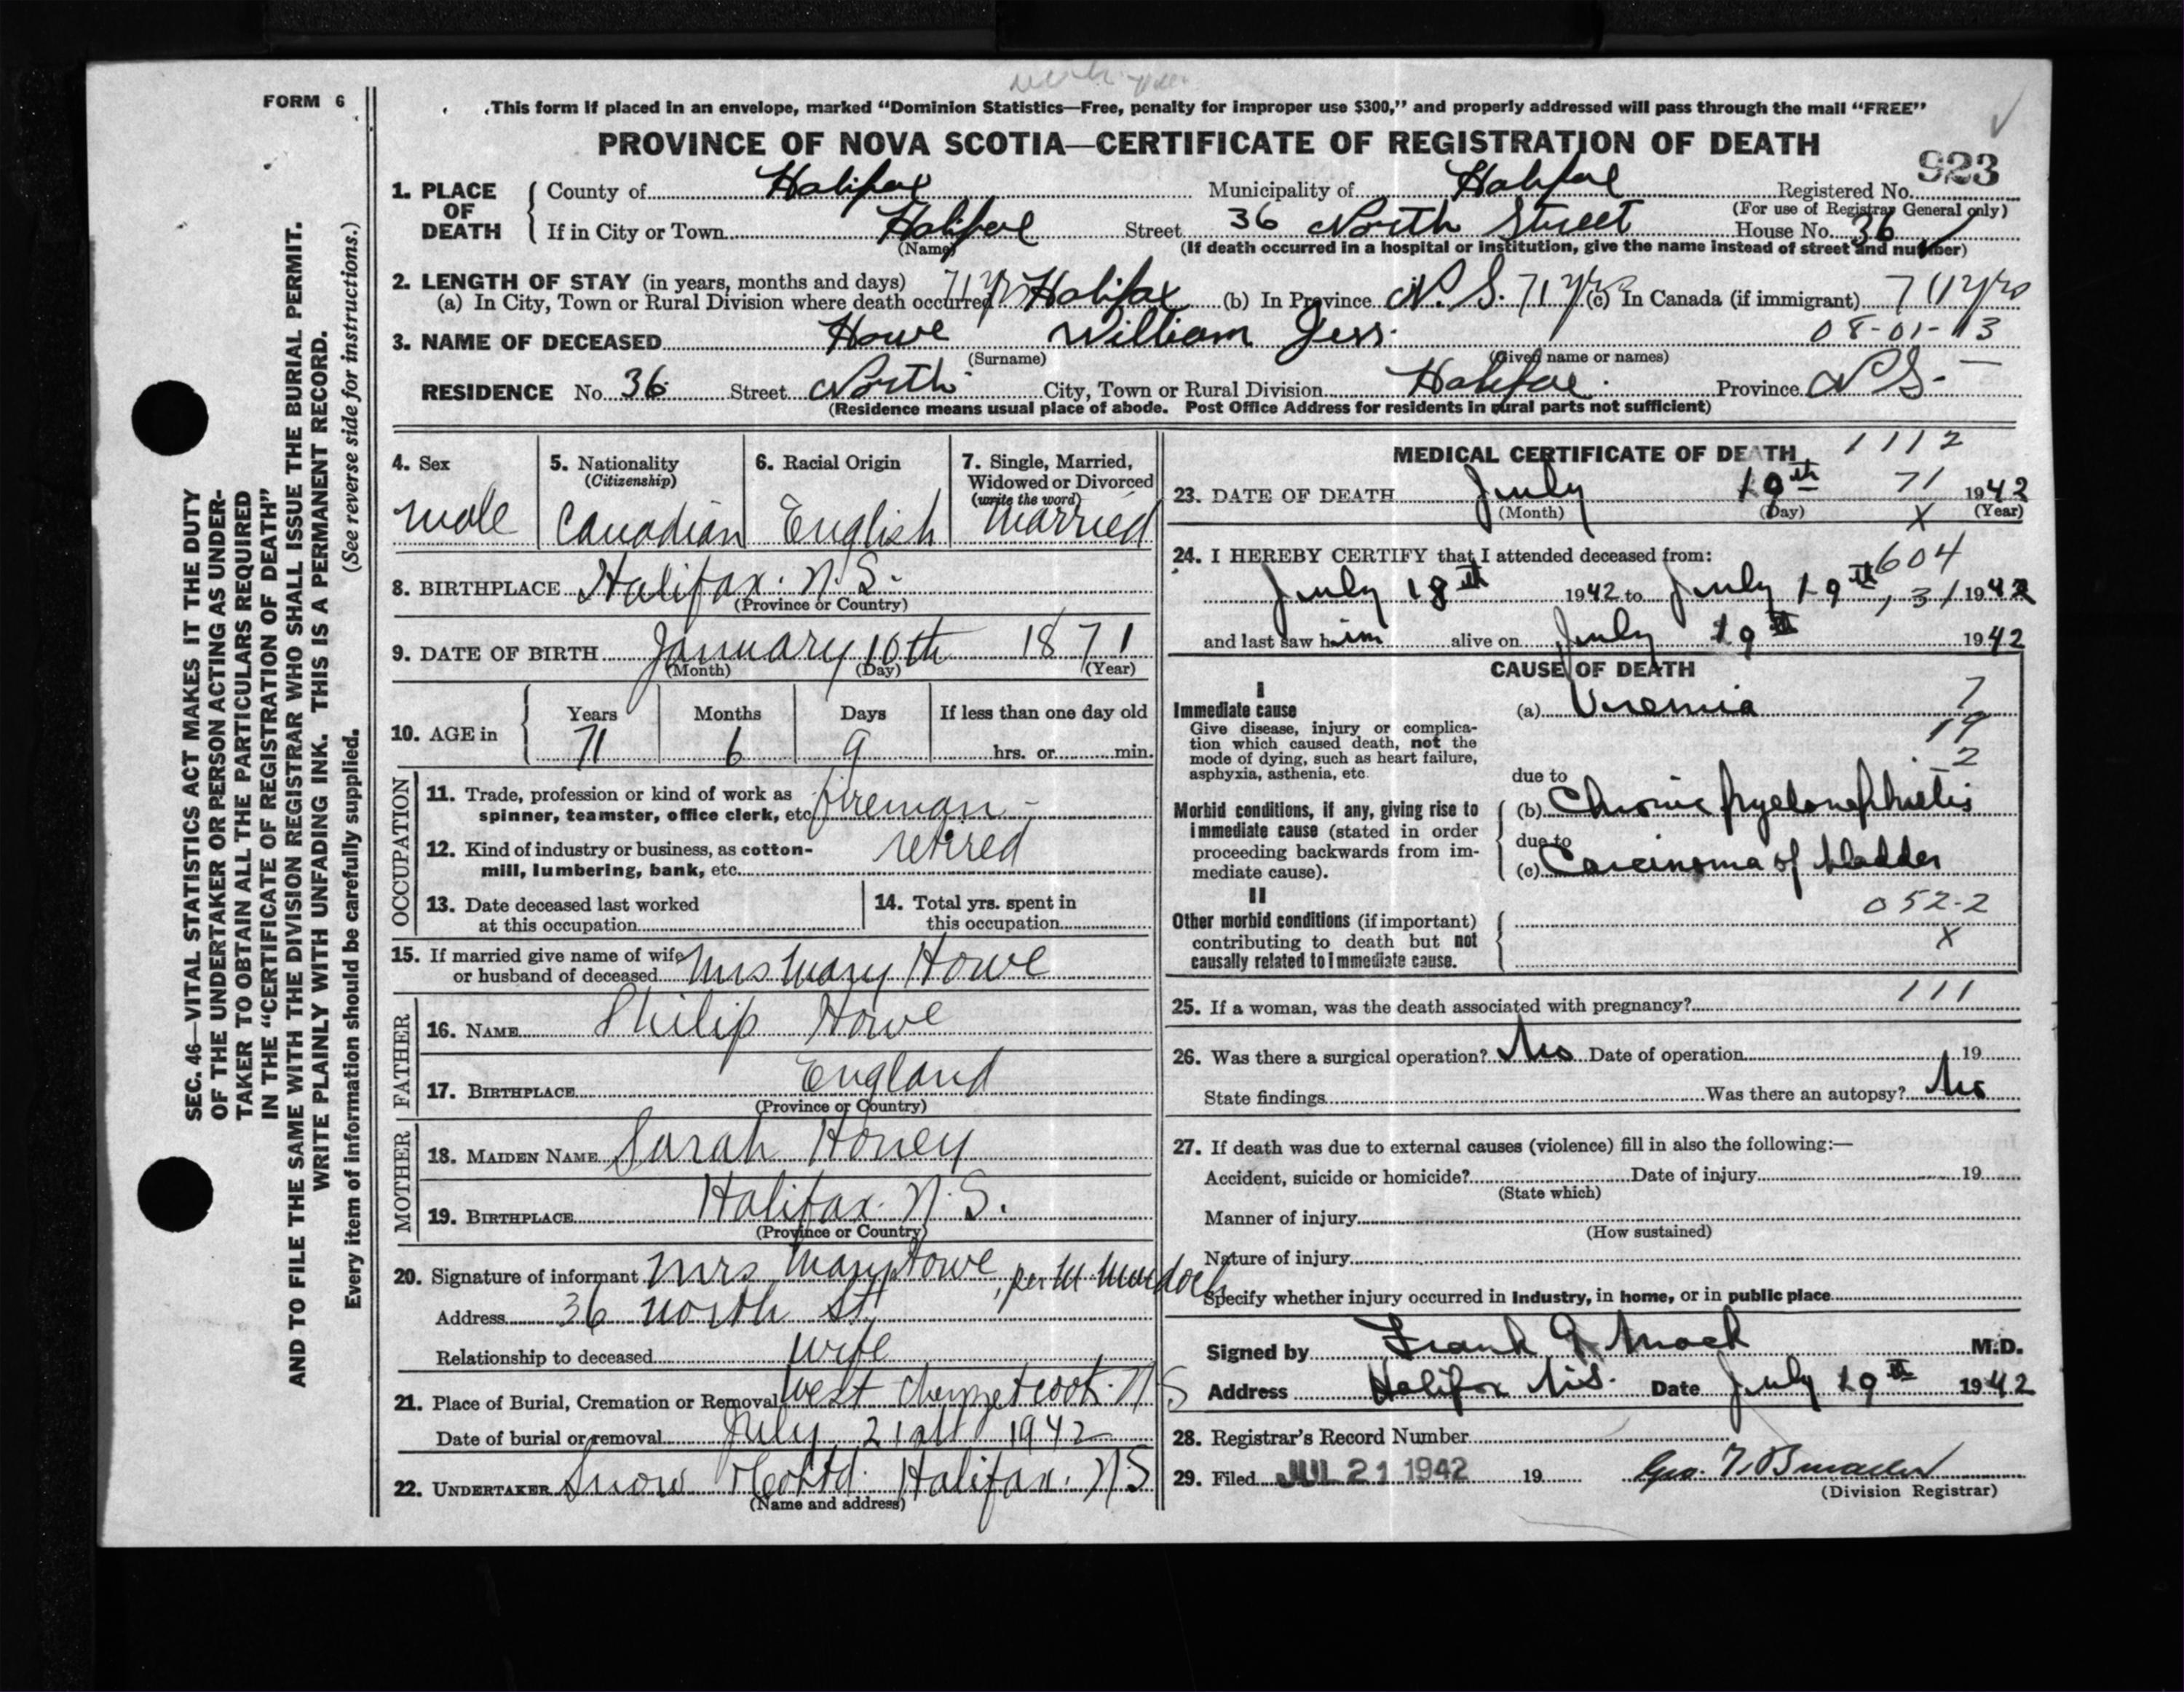 FORM 6
This form if placed in an envelope, marked “Dominion Statistics—Free, penalty for improper use $300,” and properly addressed will pass through the mail “FREE”
PROVINCE OF NOVA SCOTIA—CERTIFICATE OF REGISTRATION OF DEATH
923
1. PLACE OF DEATH County of Halifax Municipality of Halifax Registered No.
(For use of Registrar General only)
If in City or Town Halifax Street 36 North Street House No. 36
(Name) (If death occurred in a hospital or institution, give the name instead of street and number)
2. LENGTH OF STAY (in years, months and days)
(a) In City, Town or Rural Division where death occurred 71 yrs Halifax (b) In Province N.S. 71 yrs (c) In Canada (if immigrant) 71 yrs
3. NAME OF DECEASED Howe William Jess 08-01-13
(Surname) (Given name or names)
RESIDENCE No. 36 Street North City, Town or Rural Division Halifax Province N.S.
(Residence means usual place of abode. Post Office Address for residents in rural parts not sufficient)
4. Sex male
5. Nationality (Citizenship) Canadian
6. Racial Origin English
7. Single, Married, Widowed or Divorced (write the word) married
8. BIRTHPLACE Halifax. N.S.
(Province or Country)
9. DATE OF BIRTH January 10th 1871
(Month) (Day) (Year)
10. AGE in Years Months Days If less than one day old
71 6 9 hrs. or min.
OCCUPATION
11. Trade, profession or kind of work as spinner, teamster, office clerk, etc. fireman -
12. Kind of industry or business, as cotton-mill, lumbering, bank, etc. retired
13. Date deceased last worked at this occupation
14. Total yrs. spent in this occupation
15. If married give name of wife or husband of deceased Mrs Mary Howe
FATHER
16. NAME Philip Howe
17. BIRTHPLACE England
(Province or Country)
MOTHER
18. MAIDEN NAME Sarah
19. BIRTHPLACE Halifax. N.S.
(Province or Country)
20. Signature of informant Mrs Mary Howe, per M Murdoch
Address 36 North St.
Relationship to deceased wife
21. Place of Burial, Cremation or Removal West Chezzetcook. N S
Date of burial or removal July 21st 1942
22. UNDERTAKER Snow & Co Ltd. Halifax. N S
(Name and address)
MEDICAL CERTIFICATE OF DEATH 1112
23. DATE OF DEATH July 19th 71 1942
(Month) (Day) (Year)
X
24. I HEREBY CERTIFY that I attended deceased from: 604
July 18th 1942 to July 19th, 31 1942
and last saw him alive on July 19th 1942
CAUSE OF DEATH
I
Immediate cause
Give disease, injury or complication which caused death, not the mode of dying, such as heart failure, asphyxia, asthenia, etc.
(a) Uremia
7
19
2
Morbid conditions, if any, giving rise to immediate cause (stated in order proceeding backwards from immediate cause).
due to
(b) Chronic pyelonephritis
due to
(c) Carcinoma of bladder
II
Other morbid conditions (if important) contributing to death but not causally related to immediate cause.
052-2
X
25. If a woman, was the death associated with pregnancy? 111
26. Was there a surgical operation? No Date of operation 19
State findings Was there an autopsy? No
27. If death was due to external causes (violence) fill in also the following:—
Accident, suicide or homicide? Date of injury 19
(State which)
Manner of injury
(How sustained)
Nature of injury
Specify whether injury occurred in Industry, in home, or in public place
Signed by Frank G. Mack M.D.
Address Halifax N.S. Date July 19th 1942
28. Registrar's Record Number
29. Filed JUL 21 1942 19
(Division Registrar)
SEC. 46—VITAL STATISTICS ACT MAKES IT THE DUTY
OF THE UNDERTAKER OR PERSON ACTING AS UNDER-
TAKER TO OBTAIN ALL THE PARTICULARS REQUIRED
IN THE “CERTIFICATE OF REGISTRATION OF DEATH”
AND TO FILE THE SAME WITH THE DIVISION REGISTRAR WHO SHALL ISSUE THE BURIAL PERMIT.
WRITE PLAINLY WITH UNFADING INK. THIS IS A PERMANENT RECORD.
Every item of information should be carefully supplied. (See reverse side for instructions.)